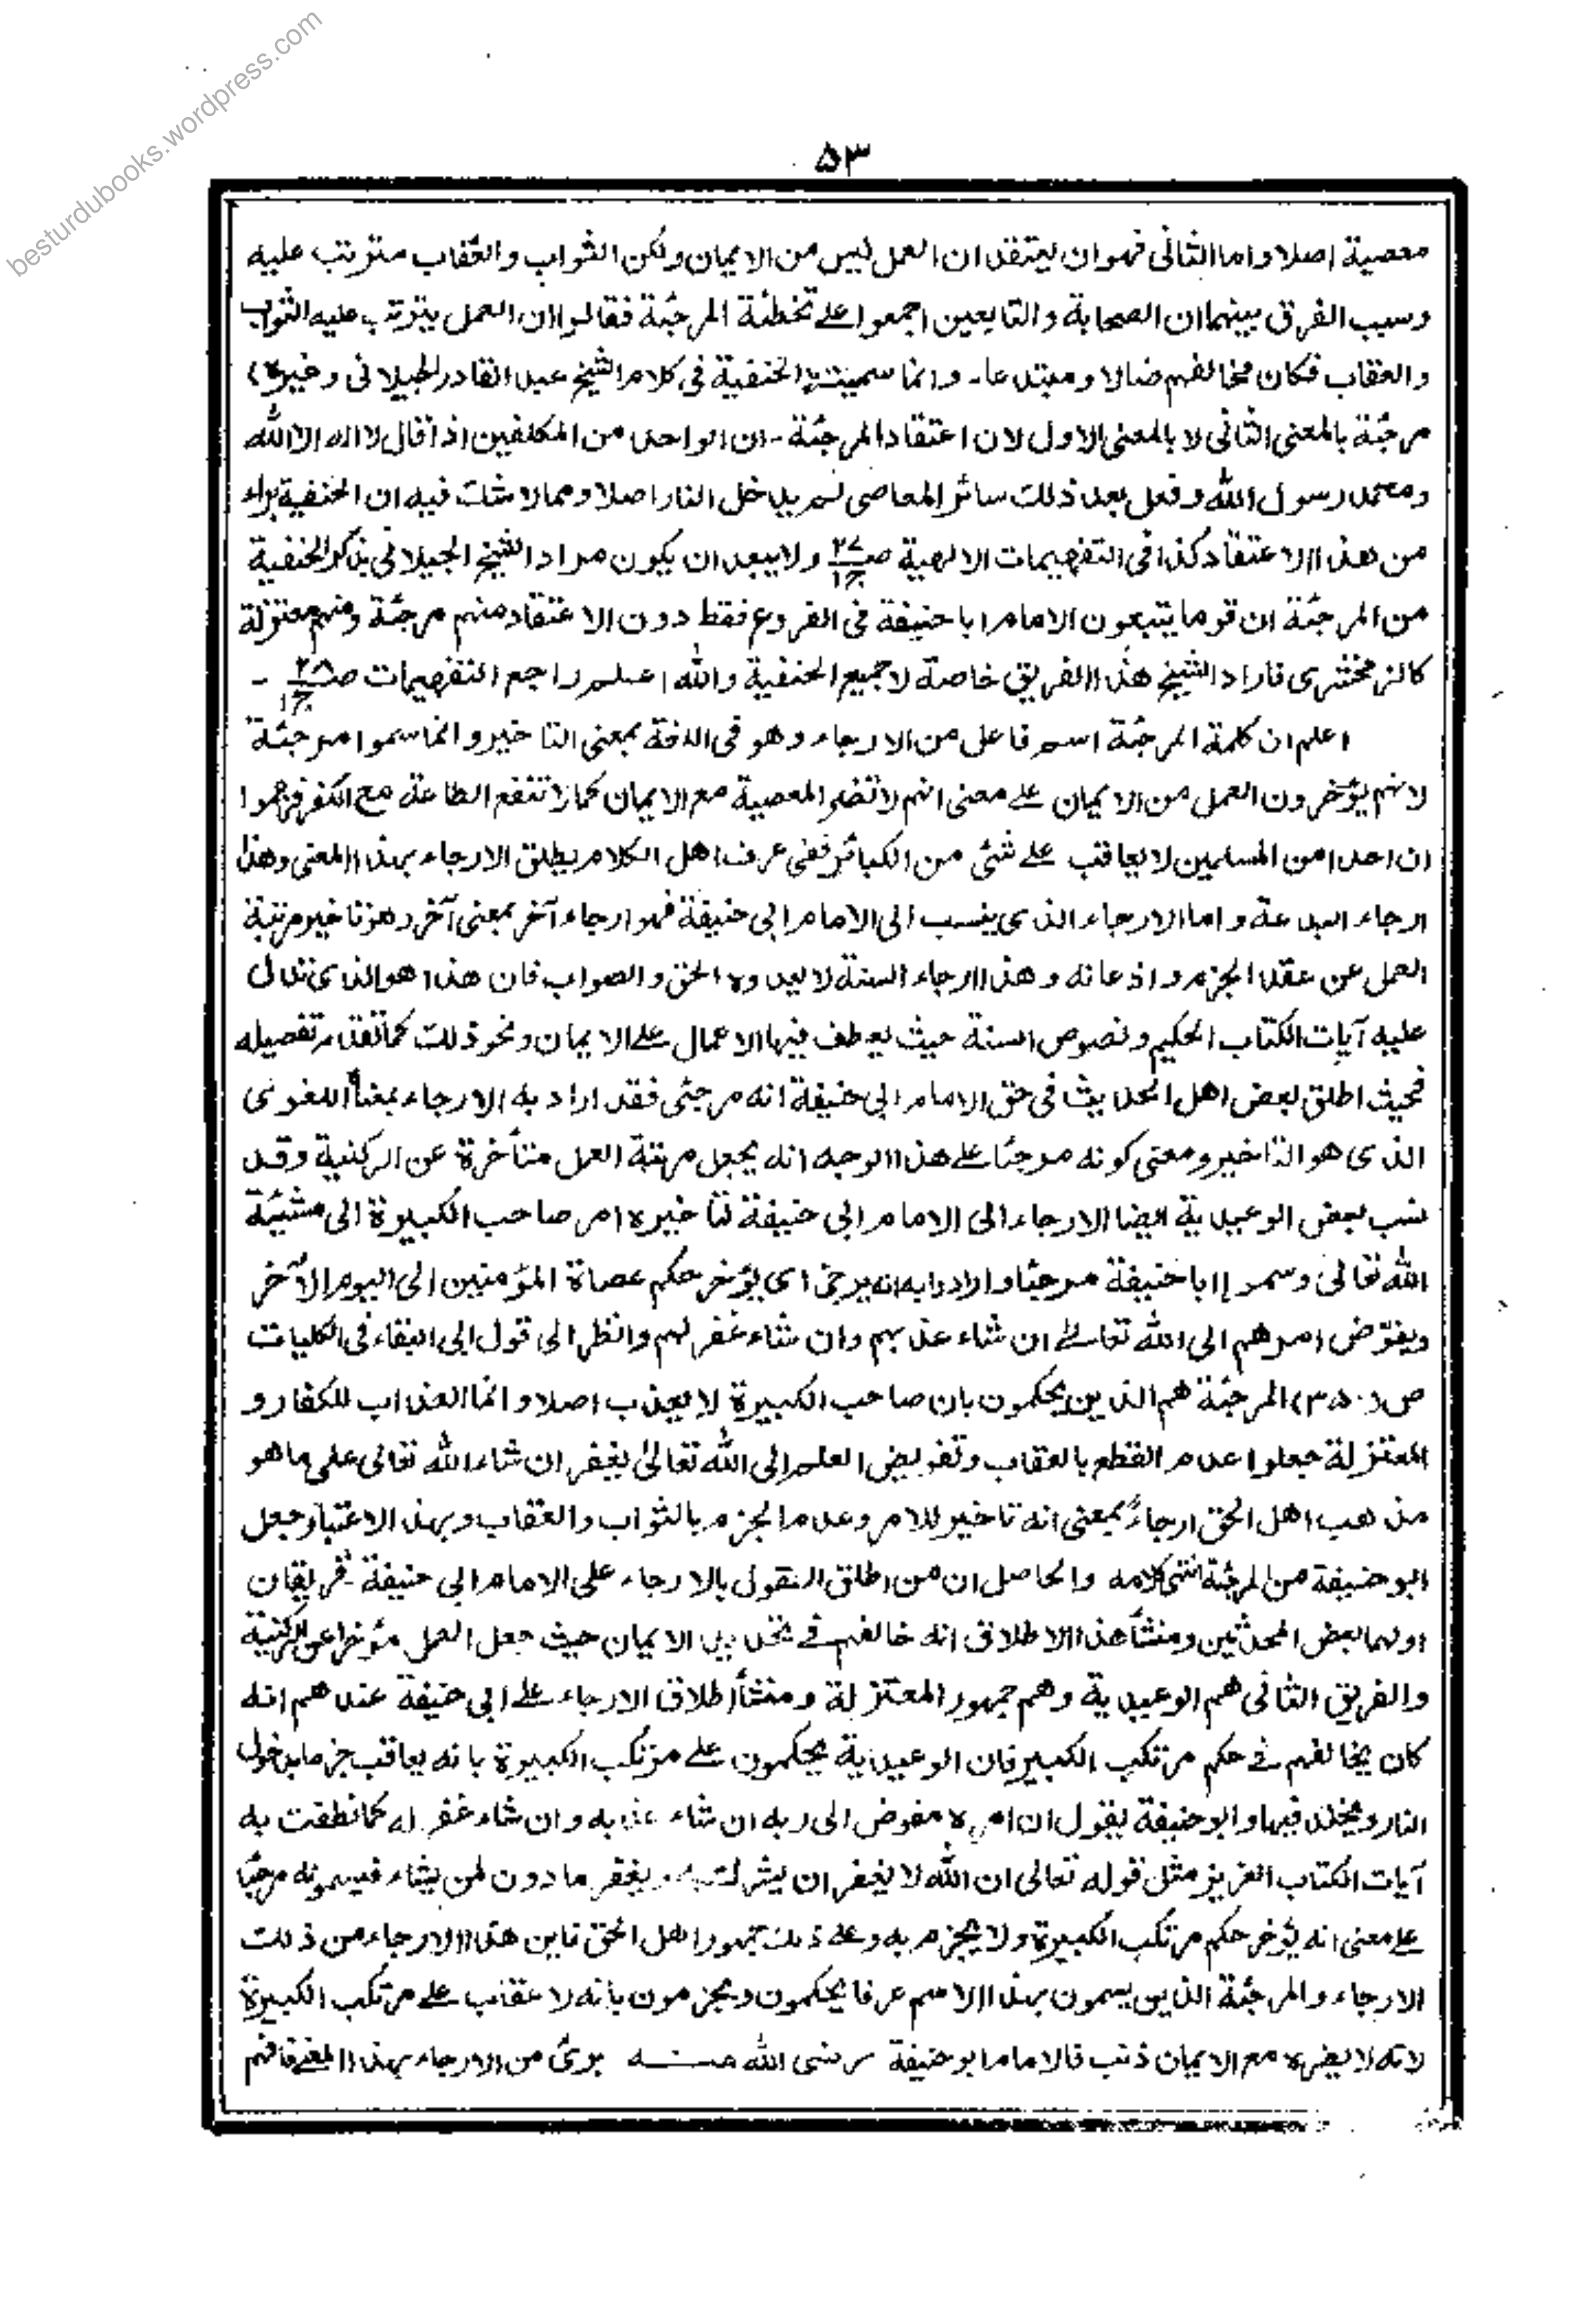 besturdubooks.wordpress.com
۵۳
معصية اصلا واما الثانی فهو ان یعتقد ان العمل لیس من الایمان ولکن الثواب والعقاب مترتب علیه
وسبب الفرق بینهما ان الصحابة والتابعین اجمعوا علی تخطئة المرجئة فقالوا ان العمل یترتب علیه الثواب
والعقاب فکان مخالفهم ضالا ومبتدعا۔ وانما سمیت (الحنفیة فی کلام الشیخ عبد القادر الجیلانی وغیره)
مرجئة بالمعنی الثانی لا بالمعنی الاول لان اعتقاد المرجئة۔ ان الواحد من المکلفین اذا قال لا اله الا الله
ومحمد رسول الله وفعل بعد ذلک سائر المعاصی لم یدخل النار اصلا ومما لا شک فیه ان الحنفیة براء
من هذا الاعتقاد کذا فی التفهیمات الالهیة ص۲۷ ج۱ ولا یبعد ان یکون مراد الشیخ الجیلانی بذکر الحنفیة
من المرجئة ان قوما یتبعون الامام ابا حنیفة فی الفروع فقط دون الاعتقاد منهم مرجئة ومنهم معتزلة
کالزمخشری فاراد الشیخ هذا الفریق خاصة لا جمیع الحنفیة والله اعلم راجع التفهیمات ص۲۸ ج۱ ۔
اعلم ان کلمة المرجئة اسم فاعل من الارجاء وهو فی اللغة بمعنی التاخیر وانما سموا مرجئة
لانهم یؤخرون العمل من الایمان علی معنی انهم لا تضر المعصیة مع الایمان کما لا تنفع الطاعة مع الکفر فزعموا
ان احدا من المسلمین لا یعاقب علی شئی من الکبائر ففی عرف اهل الکلام یطلق الارجاء بهذا المعنی وهذا
ارجاء البدعة واما الارجاء الذی ینسب الی الامام ابی حنیفة فهو ارجاء آخر بمعنی آخر وهو تاخیر مرتبة
العمل عن عقد الجزم واذعانه وهذا ارجاء السنة لا یعدوه الحق والصواب فان هذا هو الذی تدل
علیه آیات الکتاب الحکیم ونصوص السنة حیث یعطف فیها الاعمال علی الایمان ونحو ذلک کما تقدم تفصیله
فحیث اطلق بعض اهل الحدیث فی حق الامام ابی حنیفة انه مرجئی فقد اراد به الارجاء بمعناه اللغوی
الذی هو التاخیر ومعنی کونه مرجئا علی هذا الوجه انه یجعل مرتبة العمل متأخرة عن الرکنیة وقد
نسب بعض الوعیدیة ایضا الارجاء الی الامام ابی حنیفة لتاخیره امر صاحب الکبیرة الی مشیئة
الله تعالی وسموا ابا حنیفة مرجئا وارادوا به انه یرجئ ای یؤخر حکم عصاة المؤمنین الی الیوم الآخر
ویفوّض امرهم الی الله تعالی ان شاء عذبهم وان شاء غفر لهم وانظر الی قول ابی البقاء فی الکلیات
ص (۳۵۰) المرجئة هم الذین یحکمون بان صاحب الکبیرة لا یعذب اصلا وانما العذاب للکفار و
المعتزلة جعلوا عدم القطع بالعقاب وتفویض العلم الی الله تعالی یغفر ان شاء الله تعالی علی ما هو
مذهب اهل الحق ارجاءً بمعنی انه تاخیر للامر وعدم الجزم بالثواب والعقاب وبهذا الاعتبار جعل
ابو حنیفة من المرجئة انتهی کلامه والحاصل ان من اطلق القول بالارجاء علی الامام ابی حنیفة فریقان
اولهما بعض المحدثین ومنشأ هذا الاطلاق انه خالفهم فی تحدید الایمان حیث جعل العمل مؤخرا عن الرکنیة
والفریق الثانی هم الوعیدیة وهم جمهور المعتزلة ومنشأ اطلاق الارجاء علی ابی حنیفة عندهم انه
کان یخالفهم فی حکم مرتکب الکبیر فان الوعیدیة یحکمون علی مرتکب الکبیرة بانه یعاقب جزما بدخول
النار ویخلد فیها وابو حنیفة یقول ان امره مفوض الی ربه ان شاء عذبه وان شاء غفر له کما نطقت به
آیات الکتاب العزیز مثل قوله تعالی ان الله لا یغفر ان یشرک به ویغفر ما دون لمن یشاء فیسمونه مرجئا
علی معنی انه یؤخر حکم مرتکب الکبیرة ولا یجزم به وعلی ذلک جمهور اهل الحق فاین هذا الارجاء من ذلک
الارجاء والمرجئة الذین یسمون بهذا الاسم عرفا یحکمون ویجزمون بانه لا عقاب علی مرتکب الکبیرة
لانه لا یضره مع الایمان ذنب فالامام ابو حنیفة رضی الله عنه برئ من الارجاء بهذا المعنی فافهم